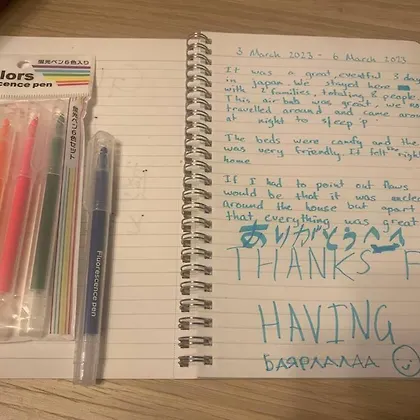 蛍光ペン6色入り
lors
scence pen
蛍光ペン6色入り
Fluorescence pen
3 March 2023 - 6 March 2023
It was a great, eventful 3 day
in japan. We stayed here
with 2 families, total 8 people.
This air bnb was great, we
travelled around and came
at night to sleep!
The beds were comfy and the
was very friendly. It felt right
home
If I had to point out flaws
would be that it was
around the house but apart
that, everything was great
ありがとう^_^
THANKS F
HAVING
БАЯРЛАЛАА